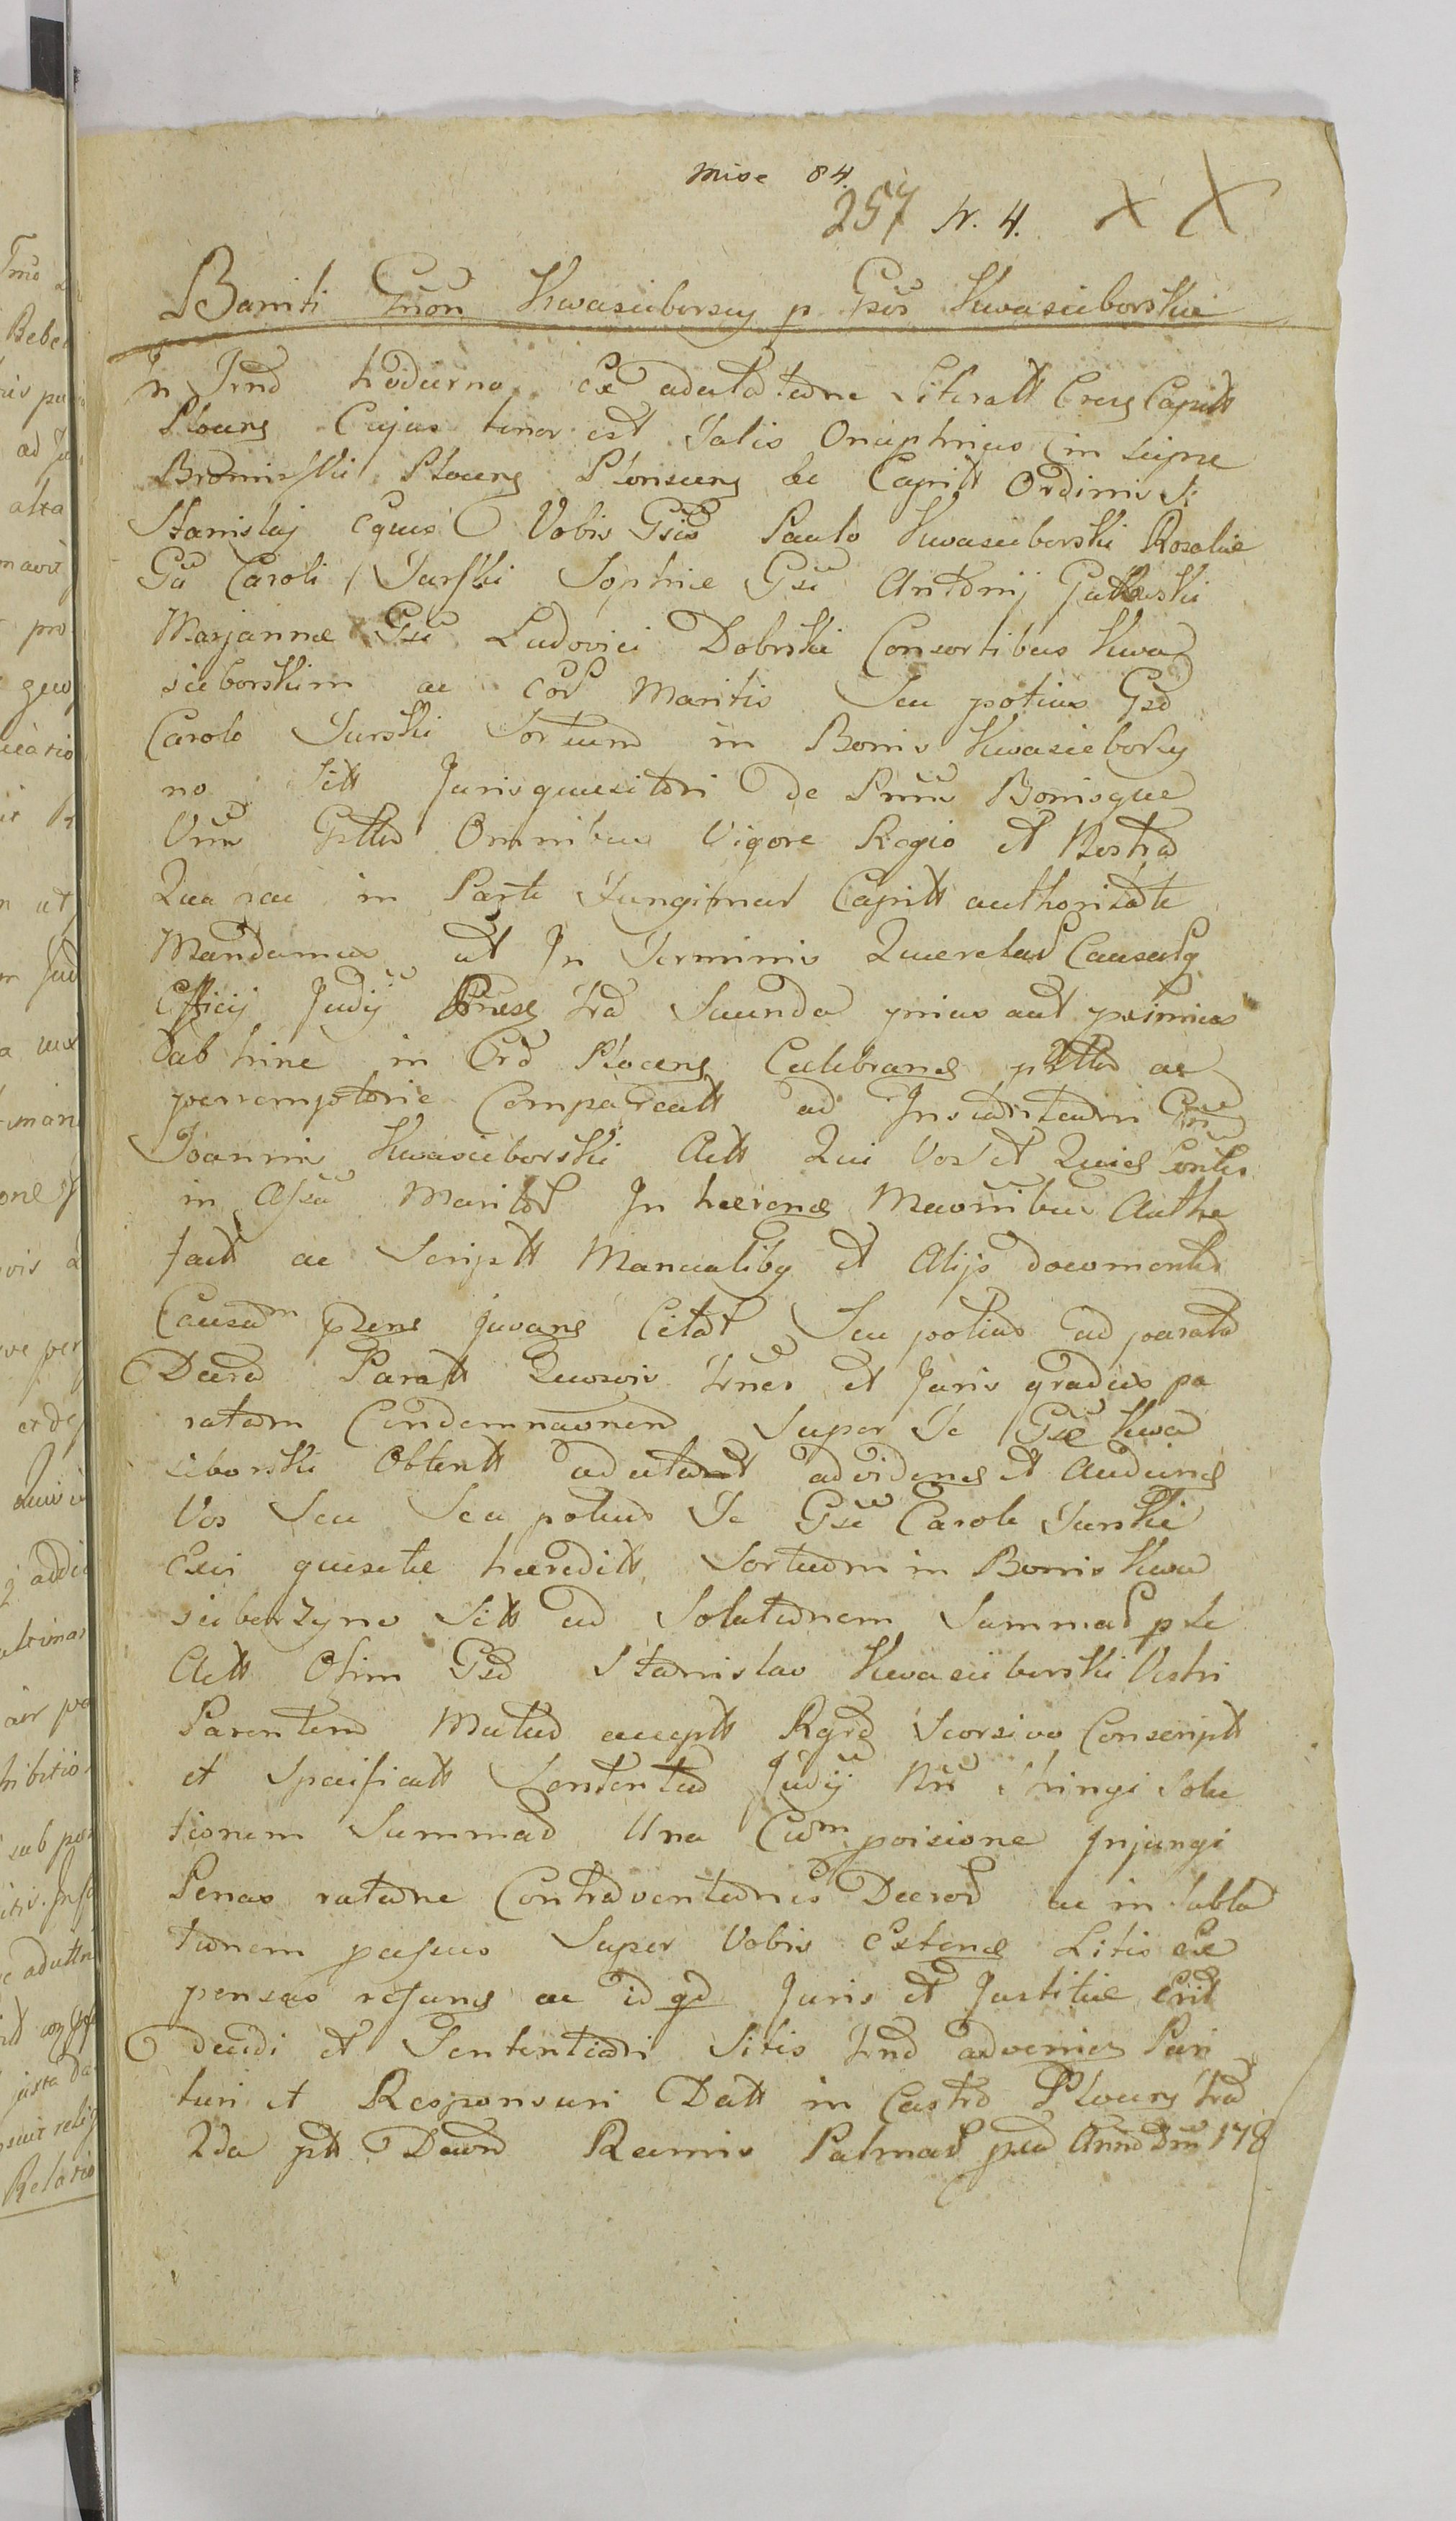 Mise 84.
257 N. 4. X X
Baniti Gnon Kwasieborscy p Gsos Kwasieborskie
In Trno hodierno Ex adcitatione Literatt Creg Capitt
Plocens Cujus tenor est talis Onuphrius in
Bromirski Plocens Plonscens &c Capitt Ordinis S:
Stanislaj Eques Vobis Gsis Paulo Kwasieborski Rosaliæ
Gsi Caroli Turski Sophiæ Gsi Antonij Gutkowski
Marjannæ Gsi Ludovici Dobrski Consortibus Kwa
sieborskim ac eor Maritis Seu potius Gso
Carolo Turski Sortium in Bonis Kwasieborzy
no Sitt Jurisquæsitori de Bonisque
Vris Gntter Omnibus Vigore Regio et Nostra
Qua hac in Parte fungimur Capitt authoritate
Mandamus ut In Terminis Querelar Causarq
Officij Judij tra Secunda prius aut proximius
ab hinc in Cro Plocens Celebrans ac
perremptorie Compareatt ad Instantiam Gsi
Joannis Kwasieborski Actt Qui Vos et
in Assa Maritor In hærens Autho
factt ac Scriptt Manualiby et Alijs documentis
Causam juvans Citat Seu potius ad parata
Decreta Paratt Quosvis Trnos et Juris gradus pa
ratam Condemnaonem Super Te Gse Kwa
sieborski Obtentt adcitat advidens et Audiens
Vos Seu Seu potius Te Gse Carole Turski
Cui quæsitæ hæreditt, Sortium in Bonis Kwa
sieborzyno Sitt ad Solutionem Summar p te
Actt Olim Gso Stanislao Kwasieborski Vestri
Parentem Mutuo acceptt Rgro Seorsivo Conscriptt
et Specificatt Sententia Judij Nri Stringi Solu
tionem Summar Una Cum poisione Injungi
Penas ratione Contraventionis Decror ac in
tionem Super Vobis Extens Litis Ex
pensas refuns ac id qd Juris et Justitiæ Erit
decidi et Sententiari Sitis Trno advenies Pari
turi et Responsuri Datt in Castro Plocens fra
2da ptt Dominica Ramis Palmar pxa Anno Dni 178